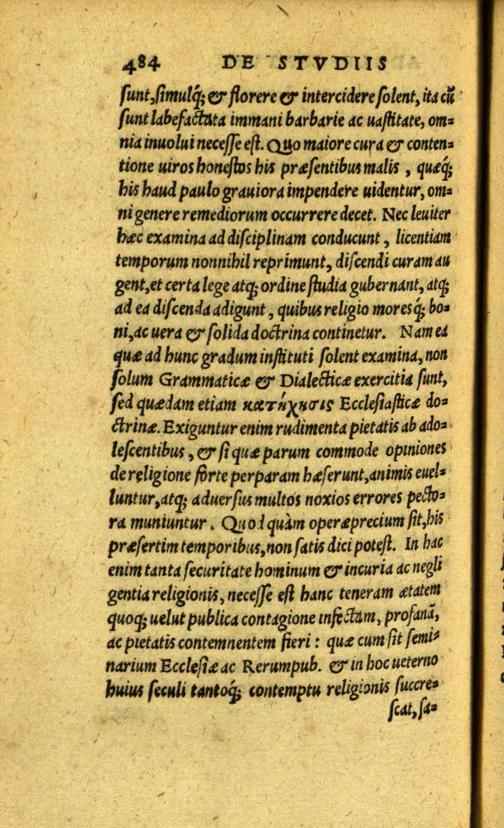 484 DE STVDIIS
sunt, simulq́; & florere & intercidere solent, ita cũ
sunt labefactata immani barbarie ac uastitate, om=
nia inuolui necesse est. Quo maiore cura & conten=
tione uiros honestos his præsentibus malis, quæq́;
his haud paulo grauiora impendere uidentur, om=
ni genere remediorum occurrere decet. Nec leuiter
hæc examina ad disciplinam conducunt, licentiam
temporum nonnihil reprimunt, discendi curam au
gent, et certa lege atq; ordine studia gubernant, atq;
ad ea discenda adigunt, quibus religio moresq́; bo=
ni, ac uera & solida doctrina continetur. Nam ea
quæ ad hunc gradum instituti solent examina, non
solum Grammaticæ & Dialecticæ exercitia sunt,
sed quædam etiam κατήχησις Ecclesiasticæ do=
ctrinæ. Exiguntur enim rudimenta pietatis ab ado=
lescentibus, & si quæ parum commode opiniones
de religione forte perperam hæserunt, animis euel=
luntur, atq; aduersus multos noxios errores pecto=
ra muniuntur. Quod quàm operæprecium sit, his
præsertim temporibus, non satis dici potest. In hac
enim tanta securitate hominum & incuria ac negli
gentia religionis, necesse est hanc teneram ætatem
quoq; uelut publica contagione infectam, profanã,
ac pietatis contemnentem fieri: quæ cum sit semi=
narium Ecclesiæ ac Rerumpub. & in hoc ueterno
huius seculi tantoq́; contemptu religionis succre=
scat, sa=